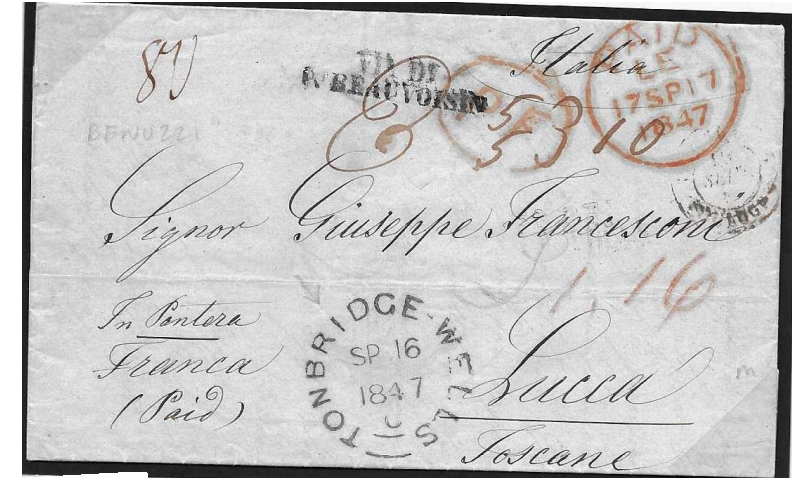 Italia
VIA DI
Pt. BEAUVOISIN
PAID
17 SP 17
1847
BENUZZI
5
5 3 10
Signor Giuseppe Francesconi
1.16
In Pontera
Franca
(Paid)
TONBRIDGE-WELLS
SP 16
1847
Lucca
Toscane